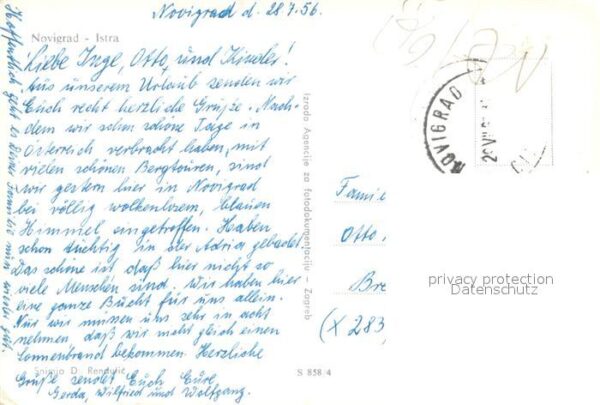 Novigrad d. 28.7.56.
Novigrad - Istra
Liebe Inge, Otto, und Kinder!
Aus unserem Urlaub senden wir
Euch recht herzliche Grüße. Nach-
dem wir schon schöne Tage in
Österreich verbracht haben, mit
vielen schönen Bergtouren, sind
wir gestern hier in Novigrad
bei völlig wolkenlosem, blauen
Himmel eingetroffen. Haben
schon tüchtig in der Adria gebadet.
Das schöne ist daß hier nicht so
viele Menschen sind. Wir haben hier
eine ganze Bucht für uns allein.
Nur wir müssen uns sehr in acht
nehmen daß wir nicht gleich einen
Sonnenbrand bekommen Herzliche
Grüße sendet Euch Eure
Gerda, Wilfried und Wolfgang.
Hoffentlich geht es Eurer wieder gut.
Snimio D.
S 858/4
Izrada Agencije za fotodokumentaciju - Zagreb
NOVIGRAD
Famie
Otto,
Bre
(X 283)
privacy protection
Datenschutz